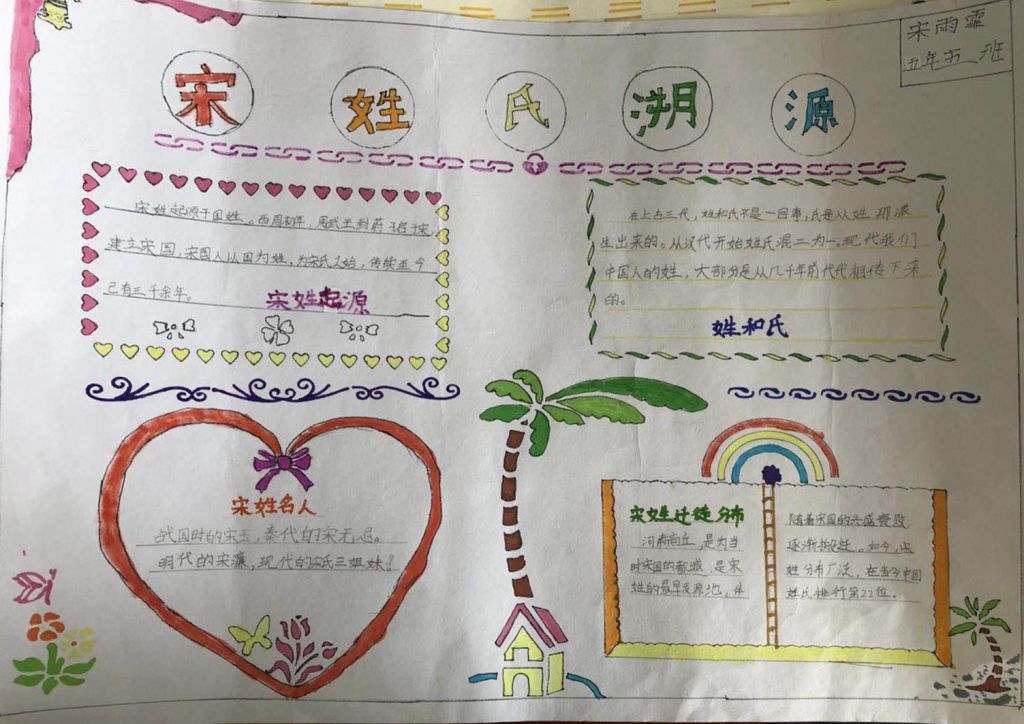 宋雨霏
五年五班
宋姓氏溯源
宋姓起源于国姓。西周初年，周武王封
建立宋国，宋国人以国为姓，为宋氏之始，传续至今
已有三千余年。
宋姓起源
在上古三代，姓和氏不是一回事，氏是从姓那派
生出来的。从汉代开始姓氏混二为一。现代我们
中国人的姓，大部分是从几千年前代代相传下来
的。
姓和氏
宋姓名人
战国时的宋玉，秦代的宋无忌。
明代的宋濂，现代的宋氏三姐妹！
宋姓迁徙分布
河南商丘，是为当
时宋国的都城，是宋
姓的最早发源地，伴
随着宋国的兴盛衰败
逐渐搬迁。如今，宋
姓分布广泛，在当今中国
姓氏排行第22位。